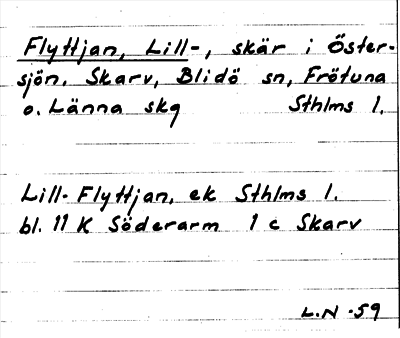 Flyttjan, Lill-, skär i Öster-
sjön. Skarv, Blidö sn, Frötuna
o. Länna skg Sthlms l.
Lill-Flyttjan, ek Sthlms l.
bl. 11 K Söderarm 1 c Skarv
L.N -59